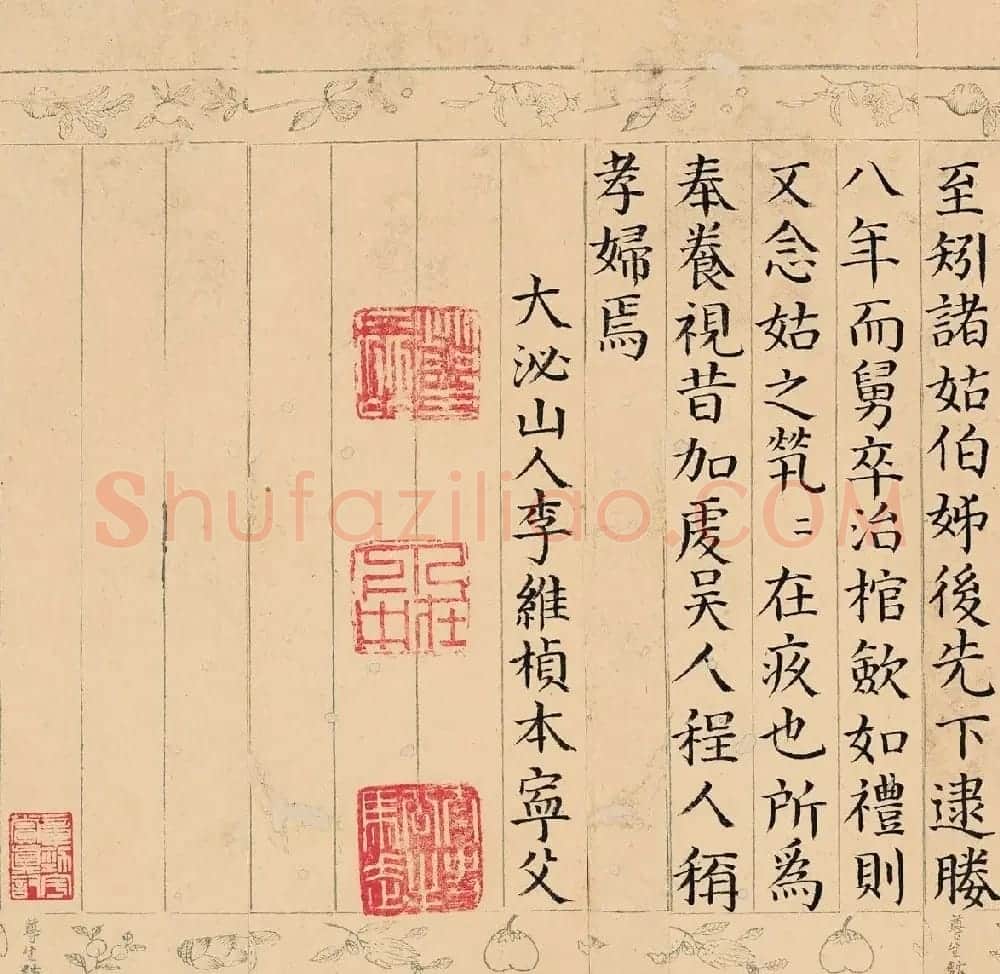 至矧諸姑伯姊後先下逮媵
八年而舅卒治棺歛如禮則
又念姑之煢〻在疚也所為
奉養視昔加虔吳人程人稱
孝婦焉
大泌山人李維楨本寧父
Shufaziliao.COM